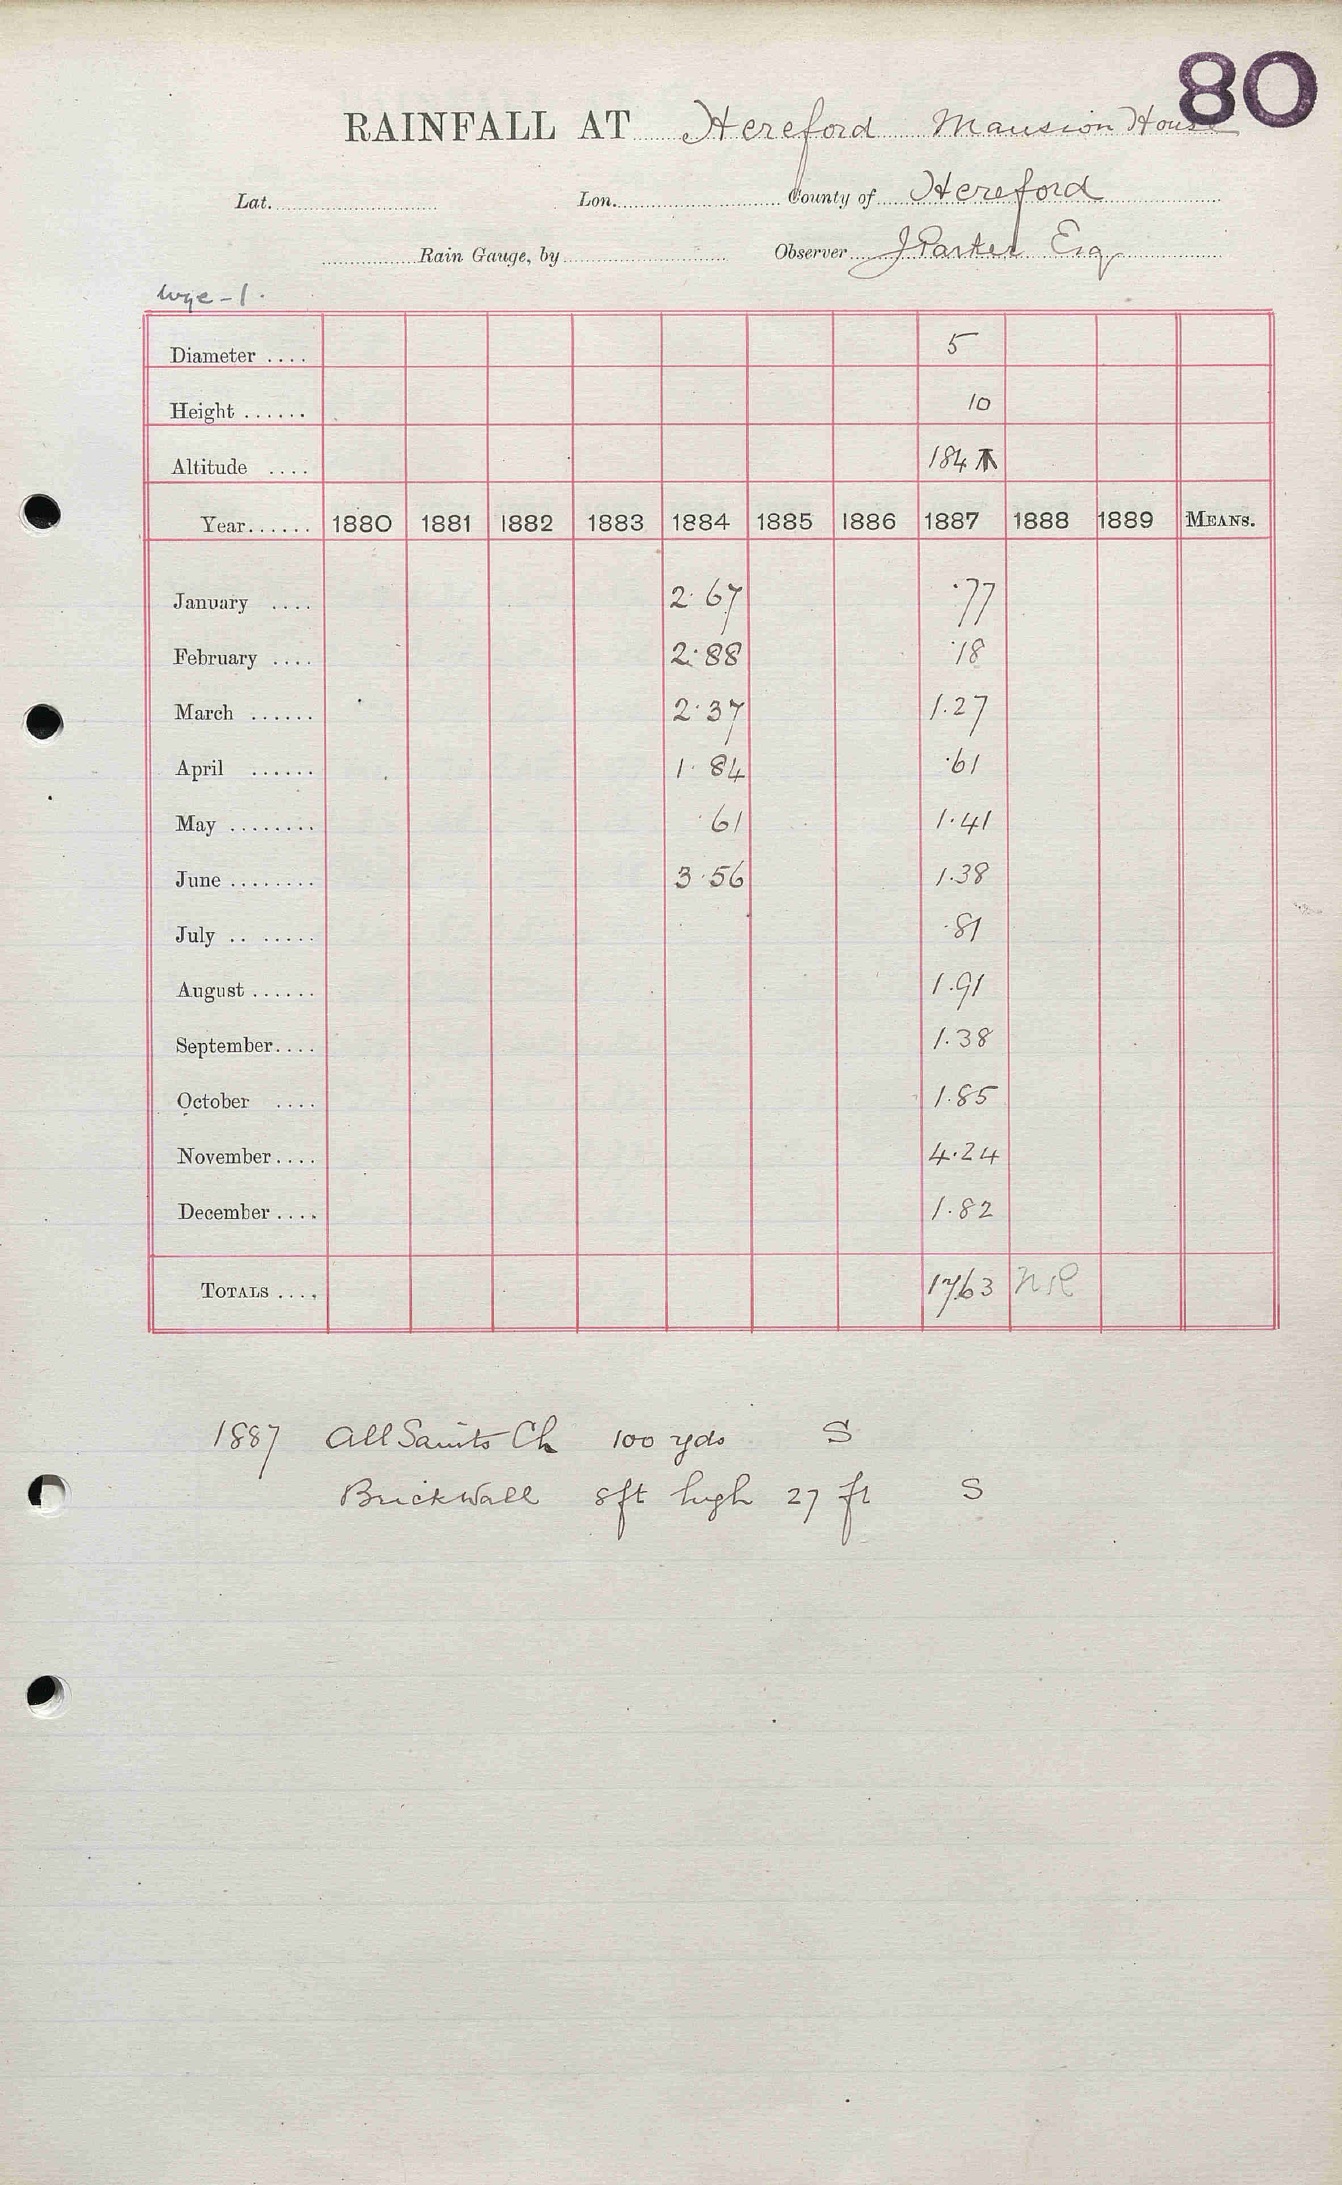 80
RAINFALL AT Hereford Mansion House
Lat. Lon. County of Hereford
Rain Gauge, by Observer J Parker Esq
Wye - 1.
Diameter .... 5
Height ...... 10
Altitude .... 184
Year...... 1880 1881 1882 1883 1884 1885 1886 1887 1888 1889 MEANS.
January .... 2.67 .77
February .... 2.88 .18
March ...... 2.37 1.27
April ...... 1.84 .61
May ........ .61 1.41
June ........ 3.56 1.38
July .. ...... .81
August ...... 1.91
September.... 1.38
October .... 1.85
November.... 4.24
December.... 1.82
TOTALS .... 17.63 NR
1887 All Saints Ch 100 yds S
Brick Wall 8ft high 27 ft S